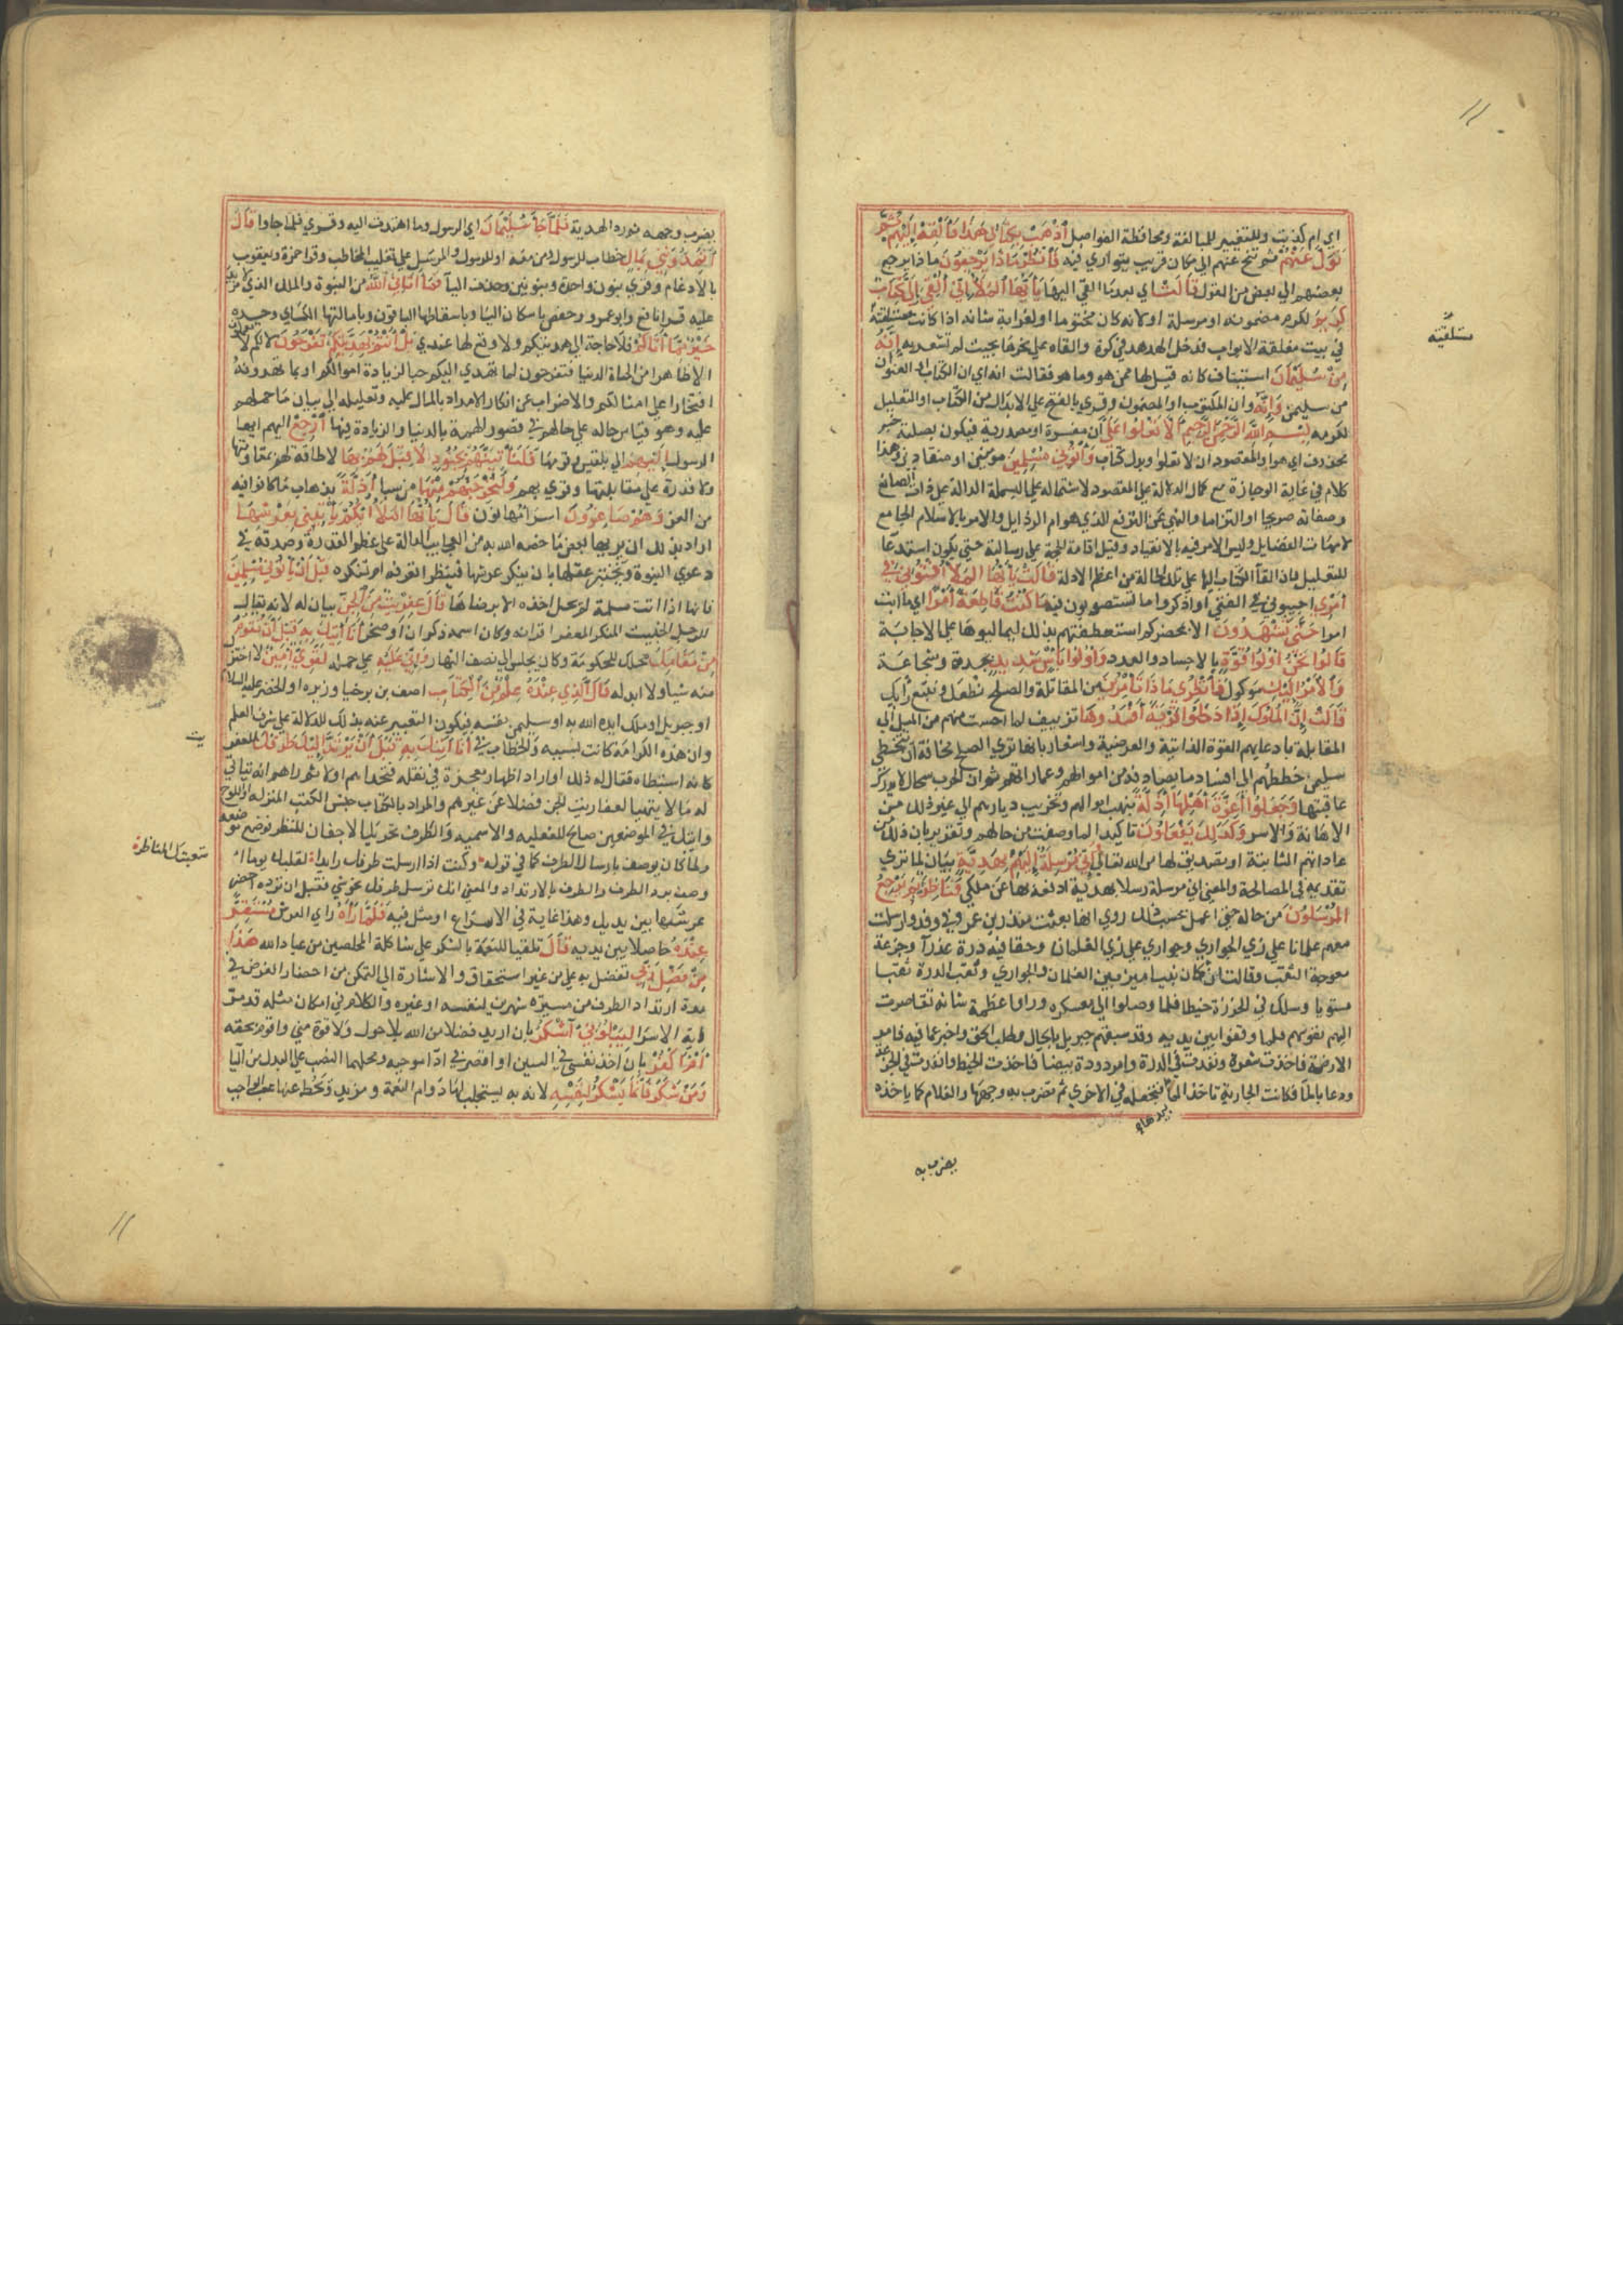 اي ام كذبت وللتغيير للمبالغة ومحافظة الفواصل أذْهَبْ بِكِتَابِي هَذَا فَأَلْقِهْ إِلَيْهِمْ ثُمَّ
تَوَلَّ عَنْهُمْ ثم تنح عنهم الي مكان قريب يتواري فيه فَأنْظُرْ مَاذَا يَرْجِعُونَ ماذا يرجع
بعضهم الي بعض من القول قَالَتْ اي بعد ما القي اليها يَأَيُّهَا اَلْمَلَأُ إِنِّي أُلْقِيَ إِلَيَّ كِتَابٌ
كَرِيمٌ لكرم مضمونه او مرسله او لانه كان مختوما او لغرابة شانه اذا كانت مستلقية
في بيت مغلقة الابواب فدخل الهدهد في كوة والقاه علي نحرها بحيث لم تشعر به إِنَّهُ
مِنْ سُلَيْمَانَ استيناف كانه قيل لها ممن هو وما هو فقالت انه اي ان الكتاب او العنوان
من سليمن وَإِنَّهُ وان المكتوب او المضمون وقري بالفتح علي الابدال من الكتاب او التعليل
لكرمه بِسْمِ اللَّهِ الرَّحْمَنِ الرَّحِيمِ لَا تَعْلُوا عَلَيَّ أن مفسرة او مصدرية فيكون بصلته خبر
محذوف اي هو او المقصود ان لا تعلوا وبدل كتاب وَأْتُونِي مُسْلِمِينَ مومنين او منقادين وهذا
كلام في غاية الوجازة مع كمال الدلالة علي المقصود لاشتماله علي البسملة الدالة علي ذات الصانع
وصفاته صريحا او التزاما والنهي عن الترفع الذي هو ام الرذايل والامر بالاسلام الجامع
لامهات الفضايل وليس الامر فيه بالانقياد وقبل اقامة الحجة علي رسالته حتي يكون استدعا
للتقليل فان القآ الكتاب اليها علي تلك الحالة من اعظم الادلة قَالَتْ يَأَيُّهَا اَلْمَلَأُ أَفْتُونِي فِي
أَمْرِي اجيبوني في الفتي او اذكروا ما تستصوبون فيه مَا كُنْتُ قَاطِعَةً أَمْرًا اي ما ابت
امرا حَتَّى تَشْهَدُونَ الا بحضركم استعطفتهم بذلك ليمالبوها علي الاجابة
قَالُوا نَحْنُ أُوْلُوا قُوَّةٍ بالاجساد والعدد وَأُوْلُوا بَأْسٍ شَدِيدٍ نجدة وشجاعة
وَاَلْأَمْرُ إِلَيْكِ موكول فَأَنْظُرِي مَاذَا تَأْمُرِينَ من المقاتلة والصلح نطعك ونتبع رأيك
قَالَتْ إِنَّ اَلْمُلُوكَ إِذَا دَخَلُوا قَرْيَةً أَفْسَدُوهَا تزييف لما احست منهم من الميل الي
المقابلة بادعايهم القوة الذاتية والعرضية واشعار بانها تري الصلح مخافة ان يتخطي
سليمن خططهم الي افساد ما يصادفه من اموالهم وعماراتهم ثم ان الحرب سجال لا يدري
عاقبتها وَجَعَلُوا أَعِزَّةَ أَهْلِهَا أَذِلَّةً بنهب اموالهم وتخريب ديارهم الي غير ذلك من
الاهانة والاسر وَكَذَلِكَ يَفْعَلُونَ تاكيد لما وصفت من حالهم وتقرير بان ذلك من
عاداتهم الثابتة او تصديق لها من الله تعالي وَإِنِّي مُرْسِلَةٌ إِلَيْهِمْ بِهَدِيَّةٍ بيان لما تري
تقديمه في المصالحة والمعني اني مرسلة رسلا بهدية ادفعه بها عن ملكي فَنَاظِرَةٌ بِمَ يَرْجِعُ
اَلْمُرْسَلُونَ من حاله حتي اعمل بحسب ذلك روي انها بعثت منذر بن عمرو في وفد وارسلت
معهم غلمانا علي زي الجواري وجواري علي زي الغلمان وحقا فيه درة عذرآ وجزعة
معوجة الثقب وقالت ان كان نبيا ميز بين الغلمان والجواري وثقب الدرة ثقبا
مستويا وسلك في الخرزة خيطا فلما وصلوا الي معسكره وراوا عظمة شانه تقاصرت
اليهم نفوسهم فلما وقفوا بين يديه وقد سبقهم جبريل بالحال فطلب الحق واخبر عما فيه فامر
الارضة فاخذت شعرة ونفذت في الدرة وامر دودة بيضا فاخذت الخيط ونفذت في الجزعة
ودعا بالمآ فكانت الجارية تاخذ المآ بيدها فتجعله في الاخري ثم تضرب به وجهها والغلام كما ياخذه
يضرب به
مستلقية
يضرب وجهه ثم رد الهدية فَلَمَّا جَآءَ سُلَيْمَانَ اي الرسول وما اهتدت اليه وقري فلما جاوا قَالَ
أَتُمِدُّونَنِي بِمَالٍ خطاب للرسول ومن معه او للرسول والمرسل علي تغليب المخاطب وقرا حمزة ويعقوب
بالادغام وقري بنون واحدة وبنونين وحذف اليآ فَمَا آتَانِيَ اللَّهُ من النبوة والملك الذي لا مزيد
عليه قرا نافع وابو عمرو وحفص باسكان اليا وباسقاطها الباقون وبامالتها الكساي وحده
خَيْرٌ مِمَّا آتَاكُمْ فلا حاجة الي هديتكم ولا وقع لها عندي بَلْ أَنْتُمْ بِهَدِيَّتِكُمْ تَفْرَحُونَ لانكم لا تعلمون
الا ظاهرا من الحياة الدنيا فتفرحون لما يهدي اليكم حبا لزيادة اموالكم او بما تهدونه
افتخارا علي امثالكم والاضراب عن انكار الامداد بالمال عليه وتعليله الي بيان ما حملهم
عليه وهو قياس حاله علي حالهم في قصور الهمة بالدنيا والزيادة فيها أَرْجِعْ اليهم ايها
الرسول إِلَيْهِمْ الي بلقيس وقومها فَلَنَأْتِيَنَّهُمْ بِجُنُودٍ لَا قِبَلَ لَهُمْ بِهَا لا طاقة لهم بمقاومتها
ولا قدرة علي مقابلتها وقري بهم وَلَنُخْرِجَنَّهُمْ مِنْهَا من سبا أَذِلَّةً بذهاب ما كانوا فيه
من العز وَهُمْ صَاغِرُونَ اسرا مهانون قَالَ يَأَيُّهَا اَلْمَلَأُ أَيُّكُمْ يَأْتِينِي بِعَرْشِهَا
اراد بذلك ان يريها بعض ما خصه الله به من العجايب الدالة علي عظم القدرة وصدقه في
دعوي النبوة ويختبر عقلها بان ينكر عرشها فينظر اتعرفه ام تنكره قَبْلَ أَنْ يَأْتُونِي مُسْلِمِينَ
فانها اذا اتت مسلمة لم يحل اخذه الا برضاها قَالَ عِفْرِيتٌ مِنَ اَلْجِنِّ بيان له لانه يقال
للرجل الخبيث المنكر المعفر اقرانه وكان اسمه ذكوان او صخرا أَنَا آتِيكَ بِهِ قَبْلَ أَنْ تَقُومَ
مِنْ مَقَامِكَ مجلسك للحكومة وكان يجلس الي نصف النهار وَإِنِّي عَلَيْهِ علي حمله لَقَوِيٌّ أَمِينٌ لا اختزل
منه شيا ولا ابدله قَالَ اَلَّذِي عِنْدَهُ عِلْمٌ مِنَ اَلْكِتَابِ اصف بن برخيا وزيره او الخضر عليه السلام
او جبريل او ملك ايده الله به او سليمن نفسه فيكون التعبير عنه بذلك للدلالة علي شرف العلم
وان هذه الكرامة كانت بسببه والخطاب في أَنَا آتِيكَ بِهِ قَبْلَ أَنْ يَرْتَدَّ إِلَيْكَ طَرْفُكَ للعفريت
كانه استبطاه فقال له ذلك او اراد اظهار معجزة في نقله فتحداهم اولا ثم راهم انه يتاتي
له ما لا يتهيا لعفاريت الجن فضلا عن غيرهم والمراد بالكتاب جنس الكتب المنزله او اللوح
وآتيك في الموضعين صالح للفعليه والاسميه والطرف تحريك الاجفان للنظر فوضع موضعه
ولما كان يوصف بارسال الطرف كما في قوله وكنت اذا ارسلت طرفك رايدا لقلبك يوما
وصف برد الطرف والطرف بالارتداد والمعني انك ترسل طرفك نحو شي فقبل ان ترده احضر
عرشها بين يديك وهذا غاية في الاسراع او مثل فيه فَلَمَّا رَآهُ راي العرش مُسْتَقِرًّا
عِنْدَهُ حاصلا بين يديه قَالَ تلقيا للنعمة بالشكر علي شاكلة المخلصين من عباد الله هَذَا
مِنْ فَضْلِ رَبِّي تفضل به علي من غير استحقاق والاشارة الي التمكن من احضار العرش في
مدة ارتداد الطرف من مسيرة شهرين لنفسه او غيره والكلام في امكان مثله قد مر في
اية الاسرا لِيَبْلُوَنِي ءَأَشْكُرُ بان اريه فضلا من الله بلا حول ولا قوة مني واقوم بحقه
أَمْ أَكْفُرُ بان اخذ نفسي في البين او اقصر في ادا مواجبه ومحلهما النصب علي البدل من اليا
وَمَنْ شَكَرَ فَإِنَّمَا يَشْكُرُ لِنَفْسِهِ لانه به يستجلب لها دوام النعمة ومزيدها ويحط عنها عب الواجب
اتعبتك المناظر